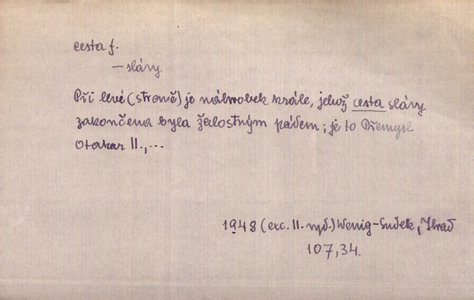 cesta f.
— slávy
Při levé (straně) je náhrobek krále, jehož cesta slávy
zakončena byla žalostným pádem; je to Přemysl
Otakar II., ...
1948 (exc. II. vyd.) Wenig-Sudek, Hrad
107,34.